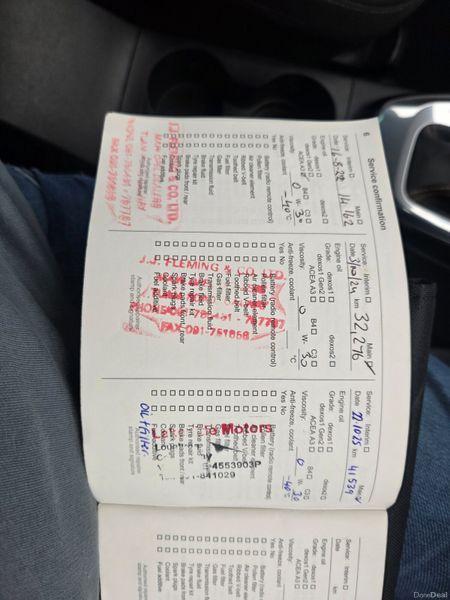 6
Service confirmation
Service: Interim □ Main □
14,162
Engine oil
Grade: dexos1 □ dexos2 □
dexos1 Gen2 □
ACEA A3 □ B4 □ C3 □
Viscosity: 0 W- 30
Anti-freeze, coolant -40 °C
Yes No
□ □ Battery (radio remote control)
□ □ Pollen filter
□ □ Air cleaner element
□ □ Ribbed V-belt
□ □ Toothed belt
□ □ Fuel filter
□ □ Gas filter
□ □ Transmission fluid
□ □ Brake fluid
□ □ Tyre repair kit
□ □ Brake pads front / rear
□ □ Spark plugs
□ □ Coolant
□ □ Fuel additive
& CO. LTD.
Authorised repairer
stamp and signature
Service: Interim □ Main ☑
Date 3/10/24 km 32,276
Engine oil
Grade: dexos1 □ dexos2 □
dexos1 Gen2 □
ACEA A3 □ B4 □ C3 □
Viscosity: 0 W- 30
Anti-freeze, coolant °C
Yes No
□ □ Battery (radio remote control)
□ □ Pollen filter
□ □ Air cleaner element
□ □ Ribbed V-belt
□ □ Toothed belt
□ □ Fuel filter
□ □ Gas filter
□ □ Transmission fluid
□ □ Brake fluid
□ □ Tyre repair kit
□ □ Brake pads front / rear
□ □ Spark plugs
□ □ Coolant
□ □ Fuel additive
J.J. FLEMING & CO. LTD.
Authorised repairer
stamp and signature
Service: Interim □ Main ☑
Date 22/10/25 km 41539
Engine oil
Grade: dexos1 □ dexos2 □
dexos1 Gen2 □
ACEA A3 □ B4 □ C3 □
Viscosity: 0 W- 20
Anti-freeze, coolant -40 °C
Yes No
Battery (radio remote control)
Motors
4553903P
841029
Oil filter.
Authorised repairer
stamp and signature
Service: Interim □
Date
Engine oil
Grade: dexos1 □
dexos1 Gen2 □
ACEA A3 □
Viscosity:
Anti-freeze, coolant
Yes No
□ □ Battery (radio
□ □ Pollen filter
□ □ Air cleaner
□ □ Ribbed V-belt
□ □ Toothed belt
□ □ Fuel filter
□ □ Gas filter
□ □ Transmission
□ □ Brake fluid
□ □ Tyre repair kit
□ □ Brake pads
□ □ Spark plugs
□ □ Coolant
□ □ Fuel additive
DoneDeal